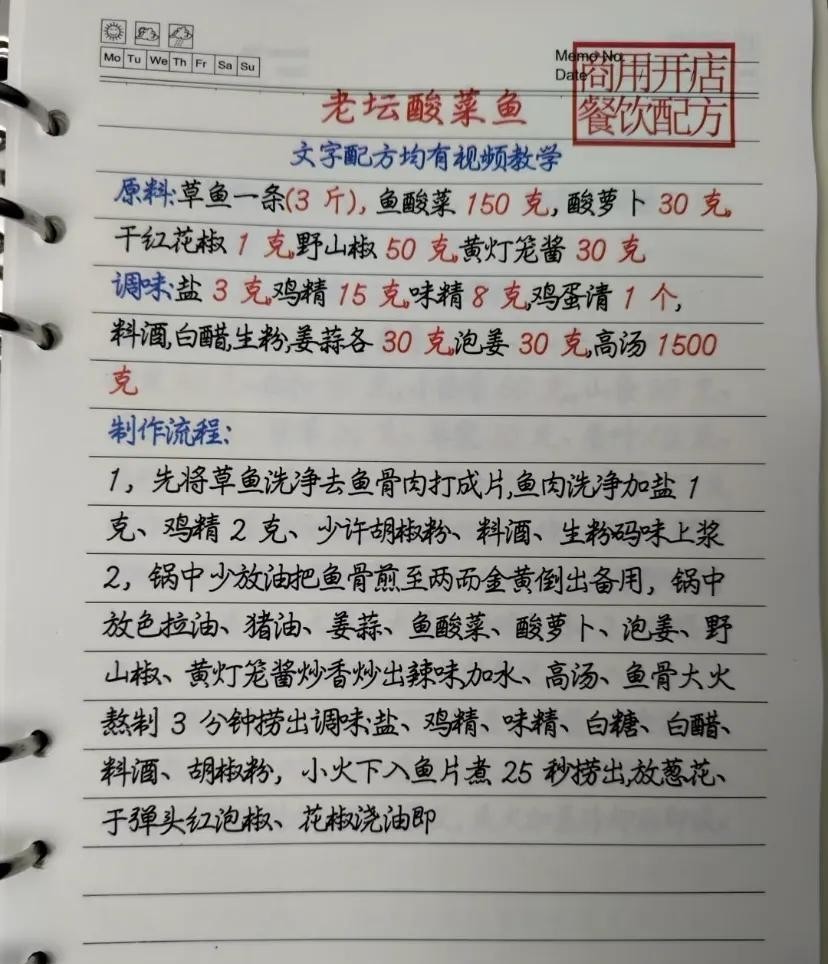 Mo Tu We Th Fr Sa Su
Memo No.
Date
商用开店
餐饮配方
老坛酸菜鱼
文字配方均有视频教学
原料:草鱼一条(3 斤), 鱼酸菜 150 克, 酸萝卜 30 克,
干红花椒 1 克,野山椒 50 克,黄灯笼酱 30 克
调味:盐 3 克,鸡精 15 克,味精 8 克,鸡蛋清 1 个,
料酒,白醋,生粉,姜蒜各 30 克,泡姜 30 克,高汤 1500
克
制作流程:
1, 先将草鱼洗净去鱼骨肉打成片,鱼肉洗净加盐 1
克、鸡精 2 克、少许胡椒粉、料酒、生粉码味上浆
2, 锅中少放油把鱼骨煎至两而金黄倒出备用, 锅中
放色拉油、猪油、姜蒜、鱼酸菜、酸萝卜、泡姜、野
山椒、黄灯笼酱炒香炒出辣味,加水、高汤、鱼骨大火
熬制 3 分钟捞出调味:盐、鸡精、味精、白糖、白醋、
料酒、胡椒粉, 小火下入鱼片煮 25 秒捞出,放葱花、
于弹头红泡椒、花椒浇油即